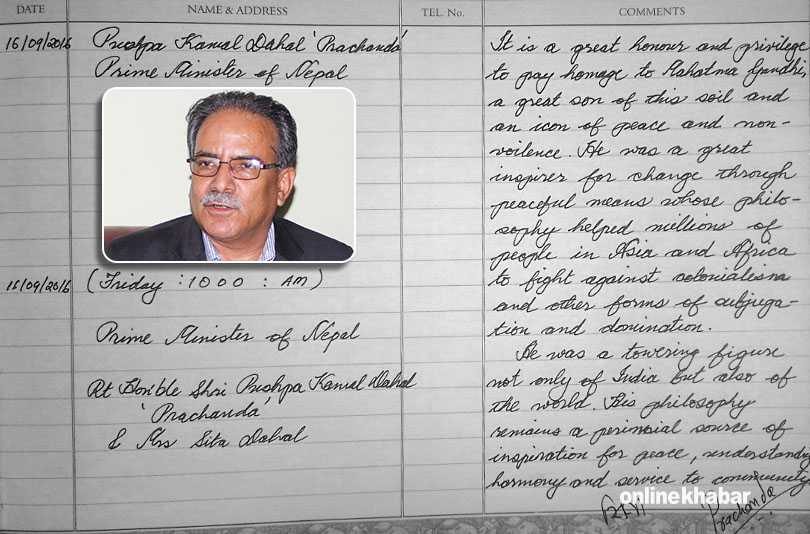 DATE NAME & ADDRESS TEL. No. COMMENTS
16/09/2016 Pushpa Kamal Dahal 'Prachanda'
Prime Minister of Nepal
16/09/2016 (Friday : 1000 : AM)
Prime Minister of Nepal
Rt Hon'ble Shri Pushpa Kamal Dahal
'Prachanda'
& Mrs Sita Dahal
It is a great honour and privilege
to pay homage to Mahatma Gandhi,
a great son of this soil and
an icon of peace and non-
voilence. He was a great
inspirer for change through
peaceful means whose philo-
sophy helped millions of
people in Asia and Africa
to fight against colonialesim
and other forms of subjuga-
tion and domination.
He was a towering figure
not only of India but also of
the world. His philosophy
remains a perinnial source of
inspiration for peace, understanding
harmony and service to community
onlinekhabar
Prachanda